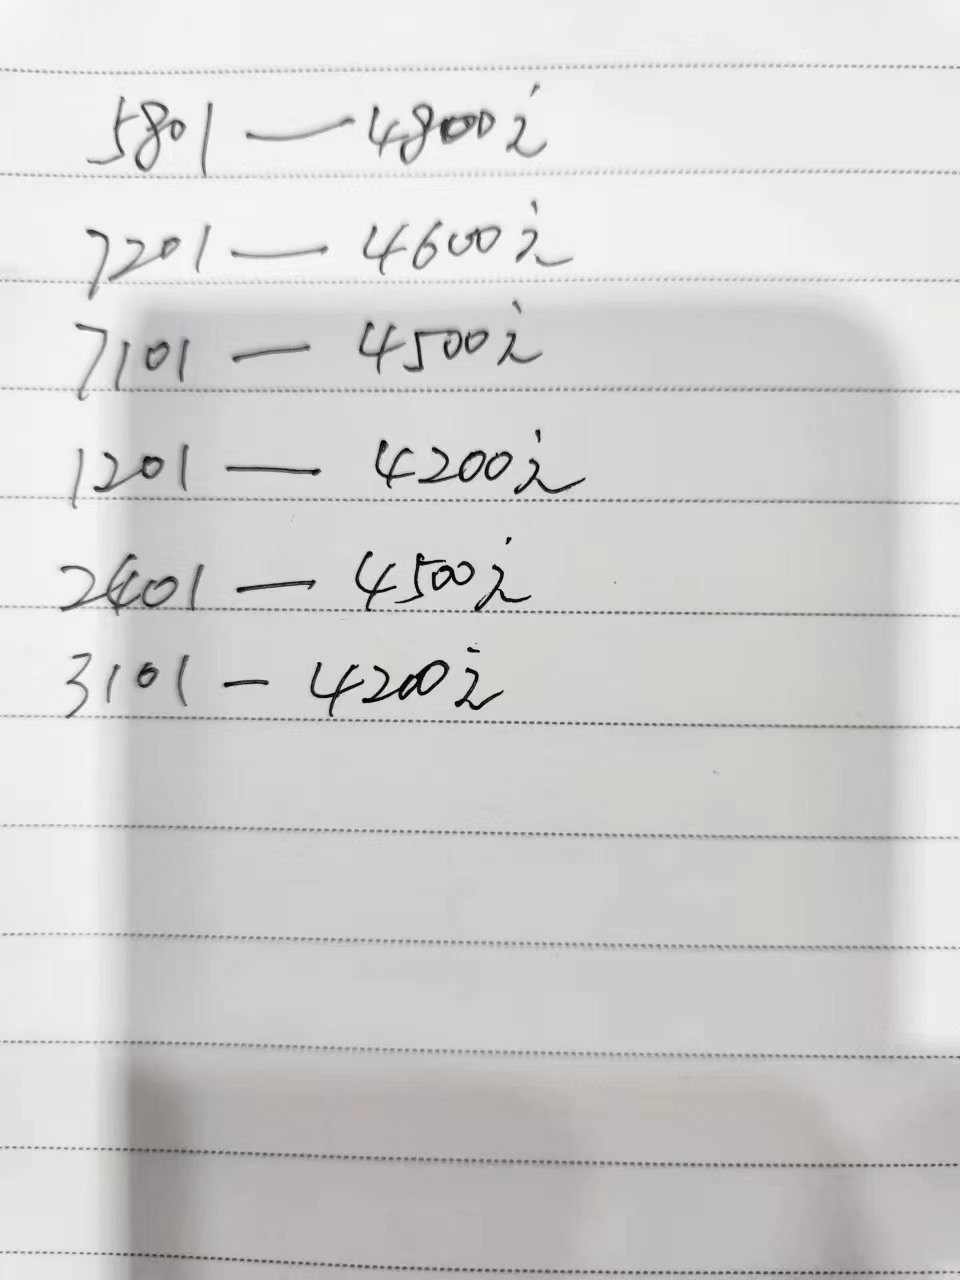 5801 — 4800元
7201 — 4600元
7101 — 4500元
1201 — 4200元
2401 — 4500元
3101 — 4200元